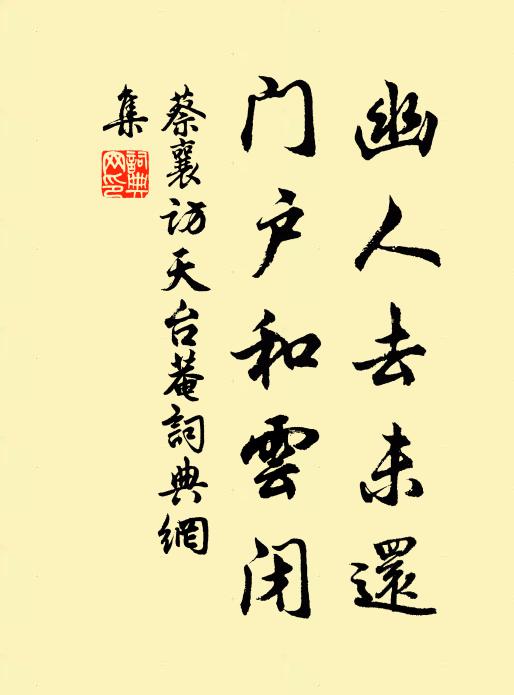 幽人去未還
门户和雲闭
蔡襄访天台菴詞典網
集
詞典網印